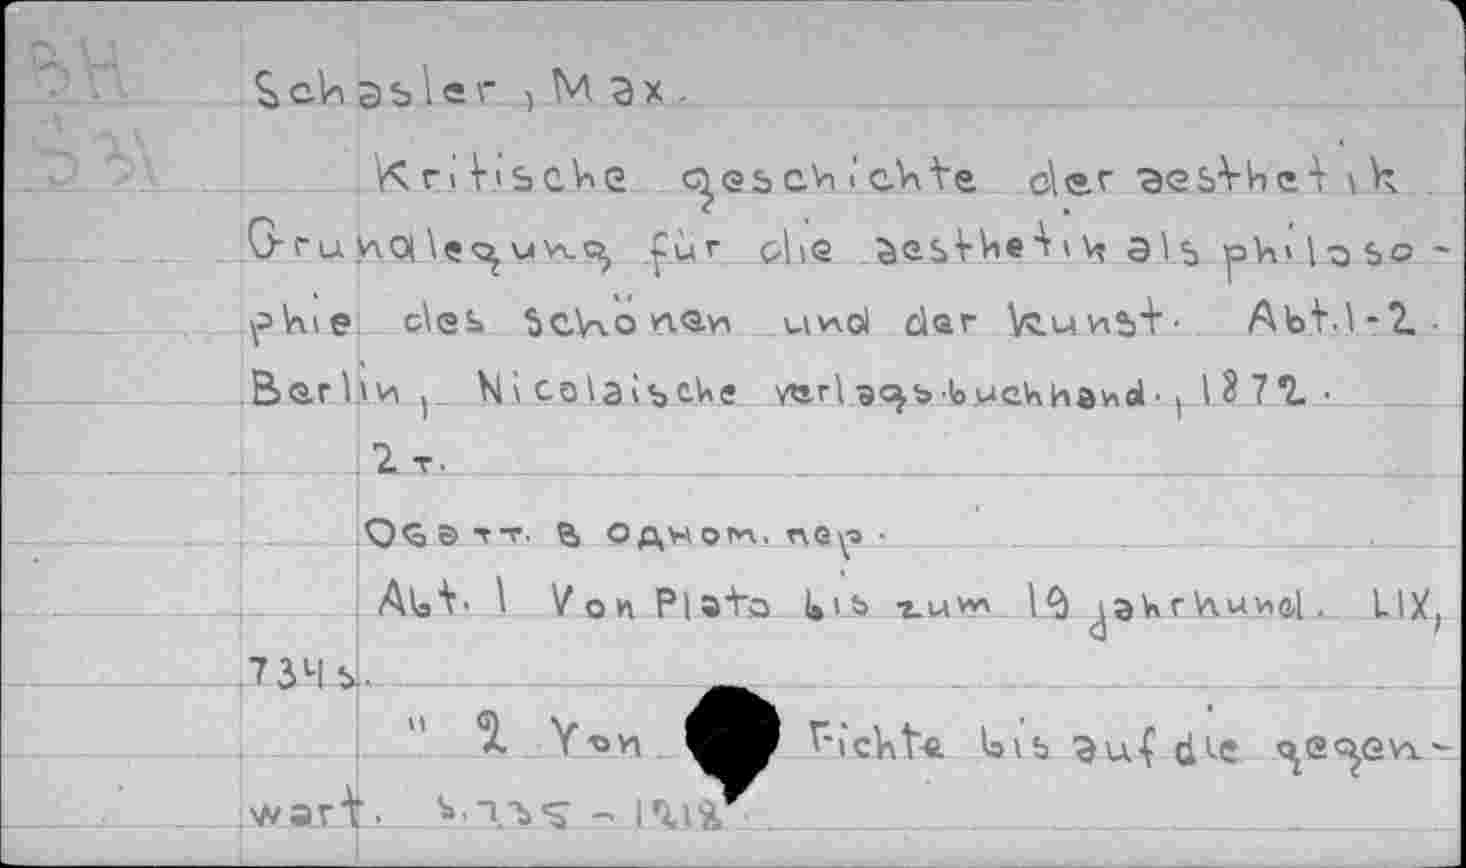 ВН
Schasler, Max.
Kritische geschichte der aesthetik.
Grundlegung für die aesthetik als philoso-
phie des Schönen und der Kunst. Abt.1-2.
Berlin, Nicolaische verlags-buchhand., 1872.
2 т.
Оба тт. в одном. пер.
Abt. 1 Von Plato bis zum 19 jahrhund. LIX,
734 s.
" 2 Von Fichte bis auf die gegen-
wart. s.735 -